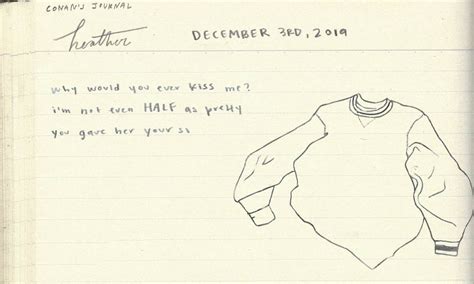 CONAN'S JOURNAL
heather
DECEMBER 3RD, 2019
why would you ever kiss me?
i'm not even HALF as pretty
you gave her your s